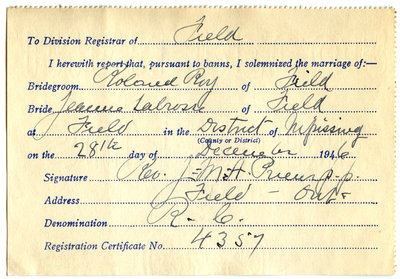 To Division Registrar of Field
I herewith report that, pursuant to banns, I solemnized the marriage of:—
Bridegroom Roland Roy of Field
Bride Jeanne Labrosse of Field
at Field in the District of Nipissing
(County or District)
on the 28th day of December 1946
Signature Rev. J-M-A. p.p.
Address Field - Ont-
Denomination R- C.
Registration Certificate No. 4357